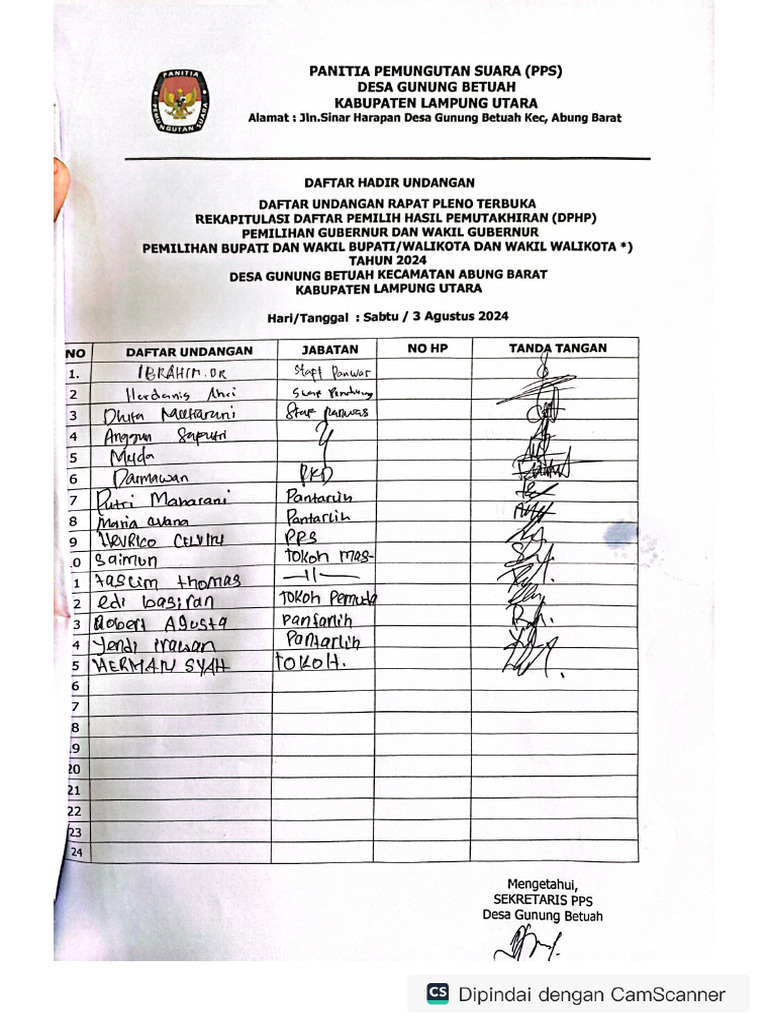 PANITIA PEMUNGUTAN SUARA (PPS)
DESA GUNUNG BETUAH
KABUPATEN LAMPUNG UTARA
Alamat : Jln.Sinar Harapan Desa Gunung Betuah Kec, Abung Barat
PANITIA
PEMUNGUTAN SUARA
DAFTAR HADIR UNDANGAN
DAFTAR UNDANGAN RAPAT PLENO TERBUKA
REKAPITULASI DAFTAR PEMILIH HASIL PEMUTAKHIRAN (DPHP)
PEMILIHAN GUBERNUR DAN WAKIL GUBERNUR
PEMILIHAN BUPATI DAN WAKIL BUPATI/WALIKOTA DAN WAKIL WALIKOTA *)
TAHUN 2024
DESA GUNUNG BETUAH KECAMATAN ABUNG BARAT
KABUPATEN LAMPUNG UTARA
Hari/Tanggal : Sabtu / 3 Agustus 2024
NO DAFTAR UNDANGAN JABATAN NO HP TANDA TANGAN
1. IBRAHIM.DR Stapf Panwas
2
3 Dhita Staf panwas
4 Anggun Saputri
5 Muda
6 Darmawan PKD
7 Putri Maharani Pantarlih
8 Maria Pantarlih
9 HENRICO PPS
.0 Saimun tokoh mas-
1 taslim thomas —11—
2 edi basiran tokoh Pemuda
3 Robert Agusta pantarlih
4 Yendi irawan Pantarlih
5 HERMAN SYAH TOKOH.
6
7
8
.9
20
21
22
23
24
Mengetahui,
SEKRETARIS PPS
Desa Gunung Betuah
CS Dipindai dengan CamScanner